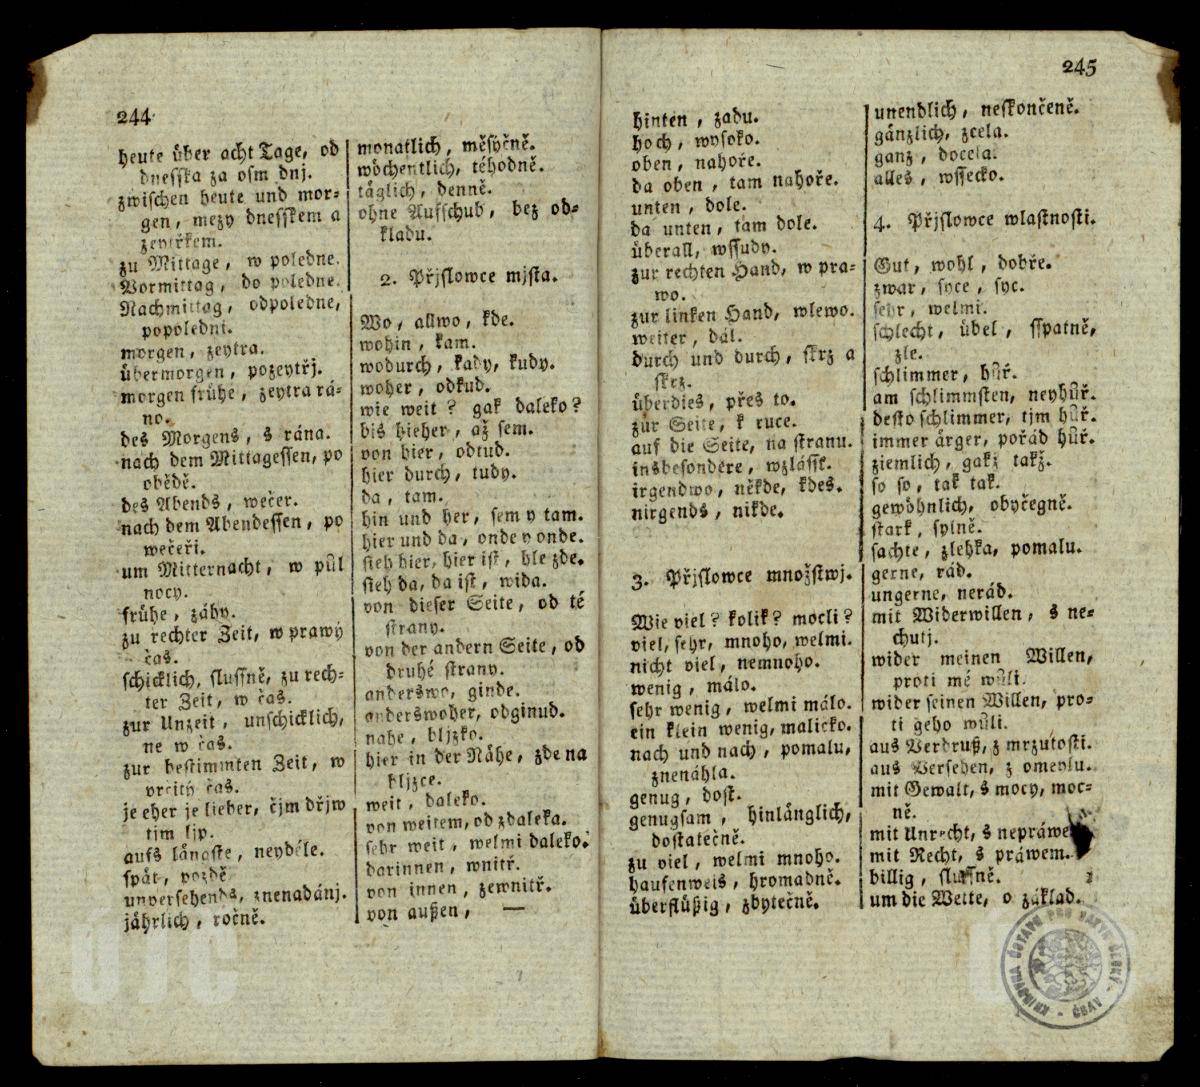 244
heute über acht Tage, od
dnesska za osm dnj.
zwischen heute und mor=
gen, mezy dnesskem a
zeytřkem.
zu Mittage, w poledne.
Vormittag, do poledne.
Nachmittag, odpoledne,
popoledni.
morgen, zeytra.
übermorgen, pozeytřj.
morgen frühe, zeytra rá=
no.
des Morgens, s rána.
nach dem Mittagessen, po
obědě.
des Abends, wečer.
nach dem Abendessen, po
wečeři.
um Mitternacht, w půl
nocy.
frühe, záhy.
zu rechter Zeit, w prawý
čas.
schicklich, slussně, zu rech=
ter Zeit, w čas.
zur Unzeit, unschicklich,
ne w čas.
zur bestimmten Zeit, w
vrčitý čas.
je eher je lieber, čjm dřjw
tjm ljp.
aufs längste, neydéle.
spät, pozdě
unversehends, znenadánj.
jährlich, ročně.
monatlich, měsýčně.
wöchentlich, téhodně.
täglich, denně.
ohne Aufschub, bez od=
kladu.
2. Přjslowce mjsta.
Wo, allwo, kde.
wohin, kam.
wodurch, kady, kudy.
woher, odkud.
wie weit? gak daleko?
bis hieher, až sem.
von hier, odtud.
hier durch, tudy.
da, tam.
hin und her, sem y tam.
hier und da, onde y onde.
sieh hier, hier ist, hle zde.
sieh da, da ist, wida.
von dieser Seite, od té
strany.
von der andern Seite, od
druhé strany.
anderswo, ginde.
anderswoher, odginud.
nahe, bljzko.
hier in der Nähe, zde na
bljzce.
weit, daleko.
von weitem, od zdaleka.
sehr weit, welmi daleko.
darinnen, wnitř.
von innen, zewnitř.
von außen, —
245
hinten, zadu.
hoch, wysoko.
oben, nahoře.
da oben, tam nahoře.
unten, dole.
da unten, tam dole.
überall, wssudy.
zur rechten Hand, w pra=
wo.
zur linken Hand, wlewo.
weiter, dál.
durch und durch, skrz a
skrz.
überdies, přes to.
zur Seite, k ruce.
auf die Seite, na stranu.
insbesondere, wzlásst.
irgendwo, někde, kdes.
nirgends, nikde.
3. Přjslowce množstwj.
Wie viel? kolik? mocli?
viel, sehr, mnoho, welmi.
nicht viel, nemnoho.
wenig, málo.
sehr wenig, welmi málo.
ein klein wenig, malicko.
nach und nach, pomalu,
znenáhla.
genug, dost.
genugsam, hinlänglich,
dostatečně.
zu viel, welmi mnoho.
haufenweis, hromadně.
überflüßig, zbytečně.
unendlich, neskončeně.
gänzlich, zcela.
ganz, docela.
alles, wssecko.
4. Přjslowce wlastnosti.
Gut, wohl, dobře.
zwar, syce, syc.
sehr, welmi.
schlecht, übel, sspatně,
zle.
schlimmer, hůř.
am schlimmsten, neyhůř.
desto schlimmer, tjm hůř.
immer ärger, pořád hůř.
ziemlich, gakž takž.
so so, tak tak.
gewöhnlich, obyčegně.
stark, sylně.
sachte, zlehka, pomalu.
gerne, rád.
ungerne, nerád.
mit Widerwillen, s ne=
chutj.
wider meinen Willen,
proti mé wůli.
wider seinen Willen, pro=
ti geho wůli.
aus Verdruß, z mrzutosti.
aus Versehen, z omylu.
mit Gewalt, s mocy, moc=
ně.
mit Unrecht, s nepráwe
mit Recht, s práwem.
billig, slussně.
um die Wette, o základ.
KNIHOVNA ÚSTAVU PRO JAZYK ČESKÝ - ČSAV -
ÚJČ